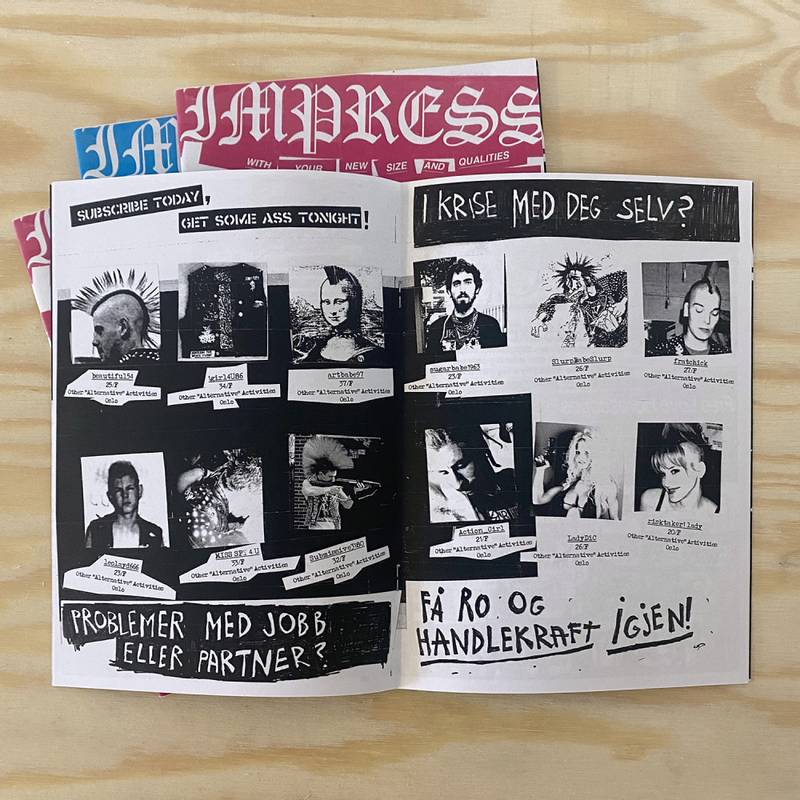 IMPRESS
IM
I
WITH YOUR NEW SIZE AND QUALITIES
SUBSCRIBE TODAY,
GET SOME ASS TONIGHT!
beautiful54
25/F
Other "Alternative" Activities
Oslo
1girl4U86
34/F
Other "Alternative" Activities
Oslo
artbabe97
37/F
Other "Alternative" Activities
Oslo
23/F
Other "Alternative" Activities
Oslo
MISS SPT 4 U
33/F
Other "Alternative" Activities
Oslo
32/F
Other "Alternative" Activities
Oslo
PROBLEMER MED JOBB
ELLER PARTNER?
I KRISE MED DEG SELV?
sugarbabe1963
23/F
Other "Alternative" Activities
Oslo
SlurpBabeSlurp
26/F
Other "Alternative" Activities
Oslo
fratchick
27/F
Other "Alternative" Activities
Oslo
Action_Girl
21/F
Other "Alternative" Activities
Oslo
LadyD1C
26/F
Other "Alternative" Activities
Oslo
risktaker!lady
20/F
Other "Alternative" Activities
Oslo
FÅ RO OG
HANDLEKRAFT IGJEN!